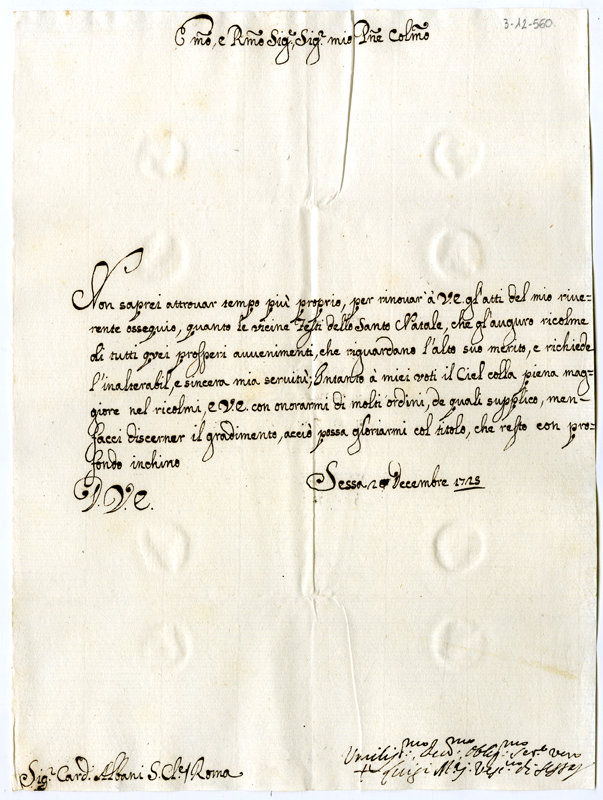 3-12-560
E mo, e Rmo Sigr, Sigr mio Pne Colmo
Non saprei attrovar tempo più proprio, per rinovar à V.E. gl'atti del mio rive-
rente ossequio, quanto le vicine Feste dello Santo Natale, che gl'auguro ricolme
di tutti quei prosperi avvenimenti, che riguardano l'alto suo merito, e richiede
l'inalterabil, e sincera mia servitù; Intanto à miei voti il Ciel colla piena mag-
giore nel ricolmi, e V.E. con onorarmi di molti ordini, de quali supplico, men-
facci discerner il gradimento, acciò possa gloriarmi col titolo, che resto con pro-
fondo inchino
Sessa 2 Decembre 1725
D. V. E.
Sigr Card: Albani S. Cle / Roma
Umilismo, devmo: obligmo Serre vero
+ Luigi Ma Vesc di Sessa